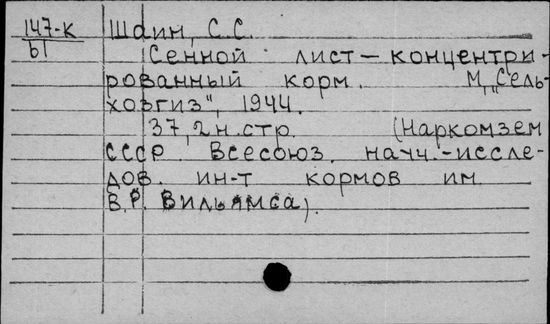 147-к Шаин, С.С.
Ы
Сенной лист – концентри-
рованный корм. М., „Сель-
хозгиз", 1944.
37, 2 н. стр. (Наркомзем
СССР. Всесоюз. науч.-иссле-
дов. ин-т кормов им.
В.Р. Вильямса).